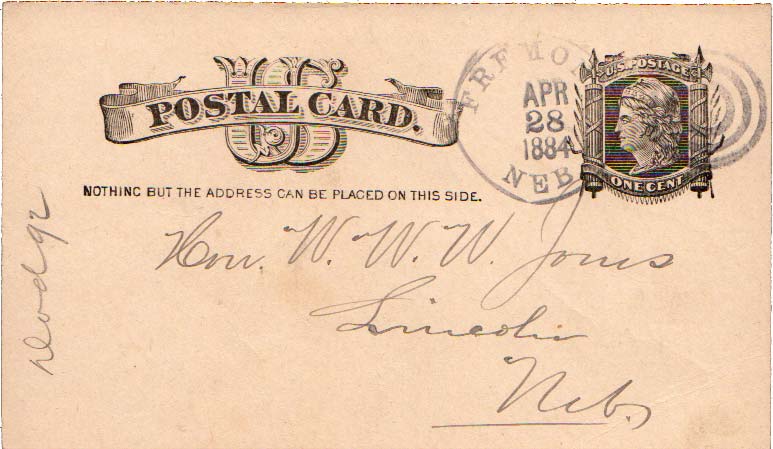 US
POSTAL CARD.
NOTHING BUT THE ADDRESS CAN BE PLACED ON THIS SIDE.
FREMO
APR
28
1884
NEB
U.S. POSTAGE
ONE CENT
Hon. W. W. W. Jones
Lincoln
Neb.
Dodge